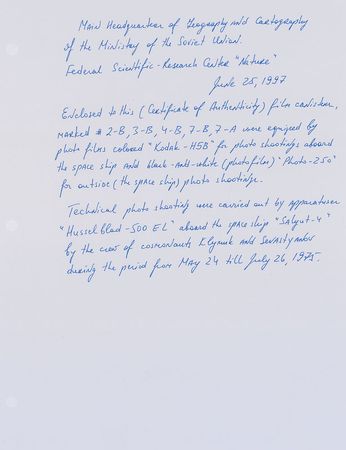 Main Headquarter of Geography and Cartography
of the Ministry of the Soviet Union.
Federal Scientific-Research Center "Nature"
June 25, 1997
Enclosed to this (Certificate of Authenticity) film canister,
marked # 2-B, 3-B, 4-B, 7-B, 7-A were equiped by
photo films colored "Kodak-H5B" for photo shootings aboard
the space ship and black-and-white (photofilm) "Photo-250"
for outside (the space ship) photo shootings.
Technical photo shooting were carried out by apparatuses
"Husselblad-500 EL" aboard the space ship "Salyut-4"
by the crew of cosmonauts Klymuk and Sevastyanov
during the period from May 24 till July 26, 1975.